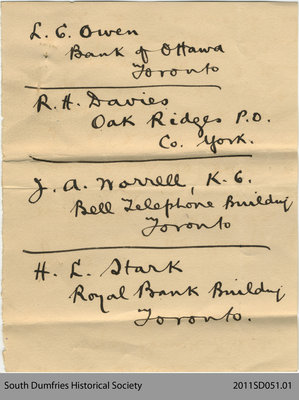 L. C. Owen
Bank of Ottawa
Toronto
R. H. Davies
Oak Ridges P.O.
Co. York.
J. A. Worrell, K. C.
Bell Telephone Building
Toronto
H. L. Stark
Royal Bank Building
Toronto.
South Dumfries Historical Society
2011SD051.01